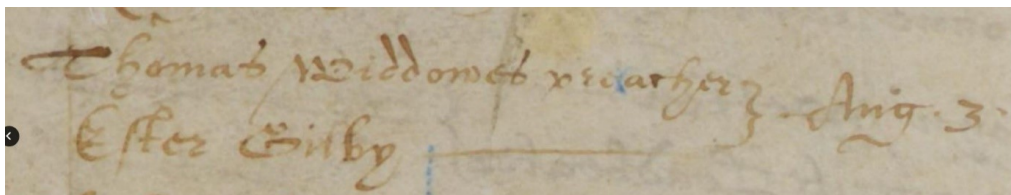 Thomas Widdowes preacher } Aug. 3.
Ester Gilby